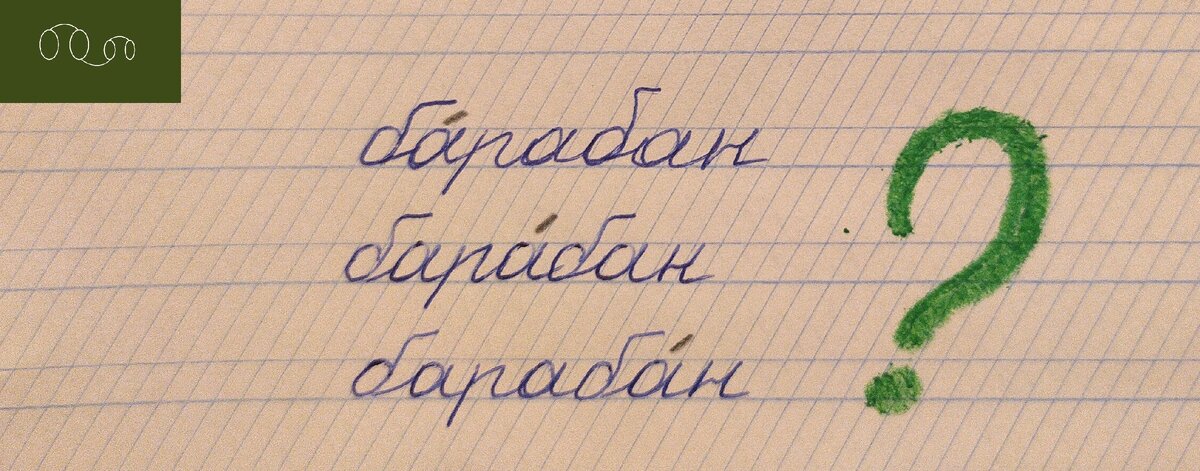 ба́рабан
бара́бан
бараба́н
?